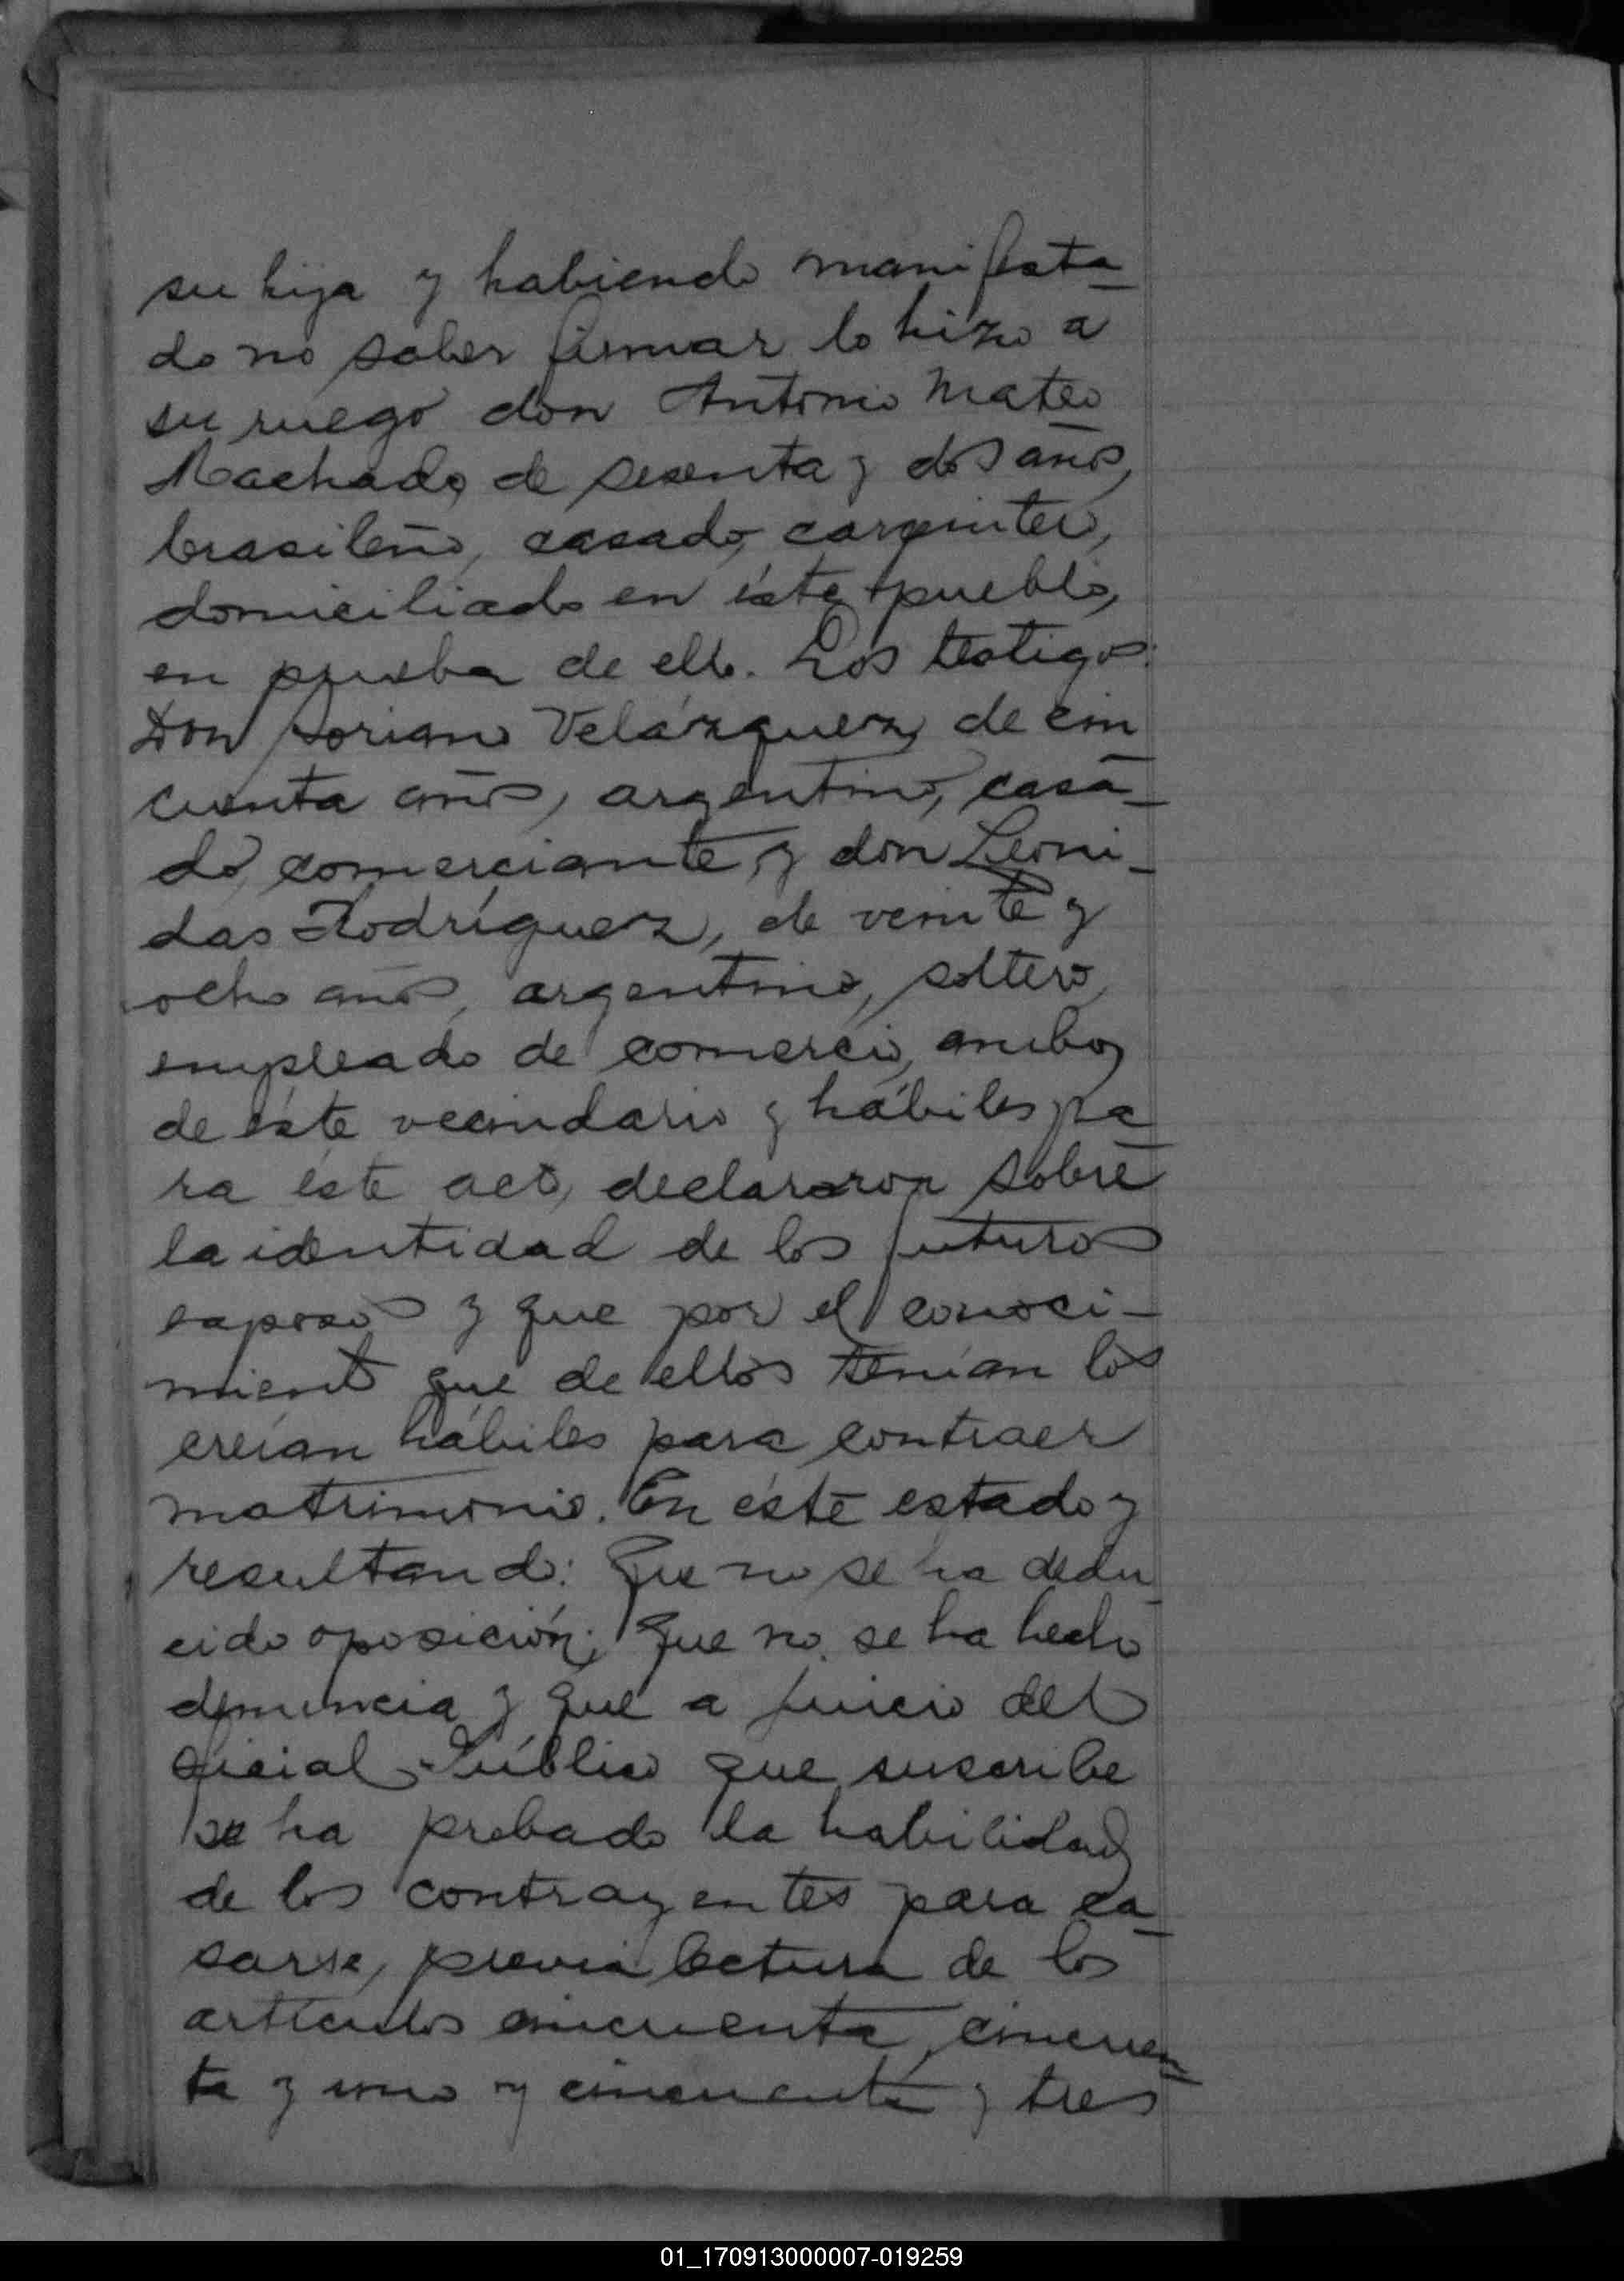 su hija y habiendo manifesta-
do no saber firmar lo hizo a
su ruego don Antonio Mateo
Machado, de sesenta y dos años,
brasileño, casado, carpintero,
domiciliado en éste pueblo,
en prueba de ello. Los testigos:
Don Soriano Velázquez, de cin
cuenta años, argentino, casa-
do, comerciante, y don Leoni-
das Rodríguez, de veinte y
ocho años, argentino, soltero,
empleado de comercio, ambos
de éste vecindario y hábiles pa-
ra éste acto, declararon sobre
la identidad de los futuros
esposos y que por el conoci-
miento que de ellos tenían los
creían hábiles para contraer
matrimonio. En éste estado y
resultando: Que no se ha dedu-
cido oposición; que no se ha hecho
denuncia y que a juicio del
oficial Público que suscribe
se ha probado la habilidad
de los contrayentes para ca-
sarse, previa lectura de los
artículos cincuenta, cincuen-
ta y uno y cincuenta y tres
01_170913000007-019259